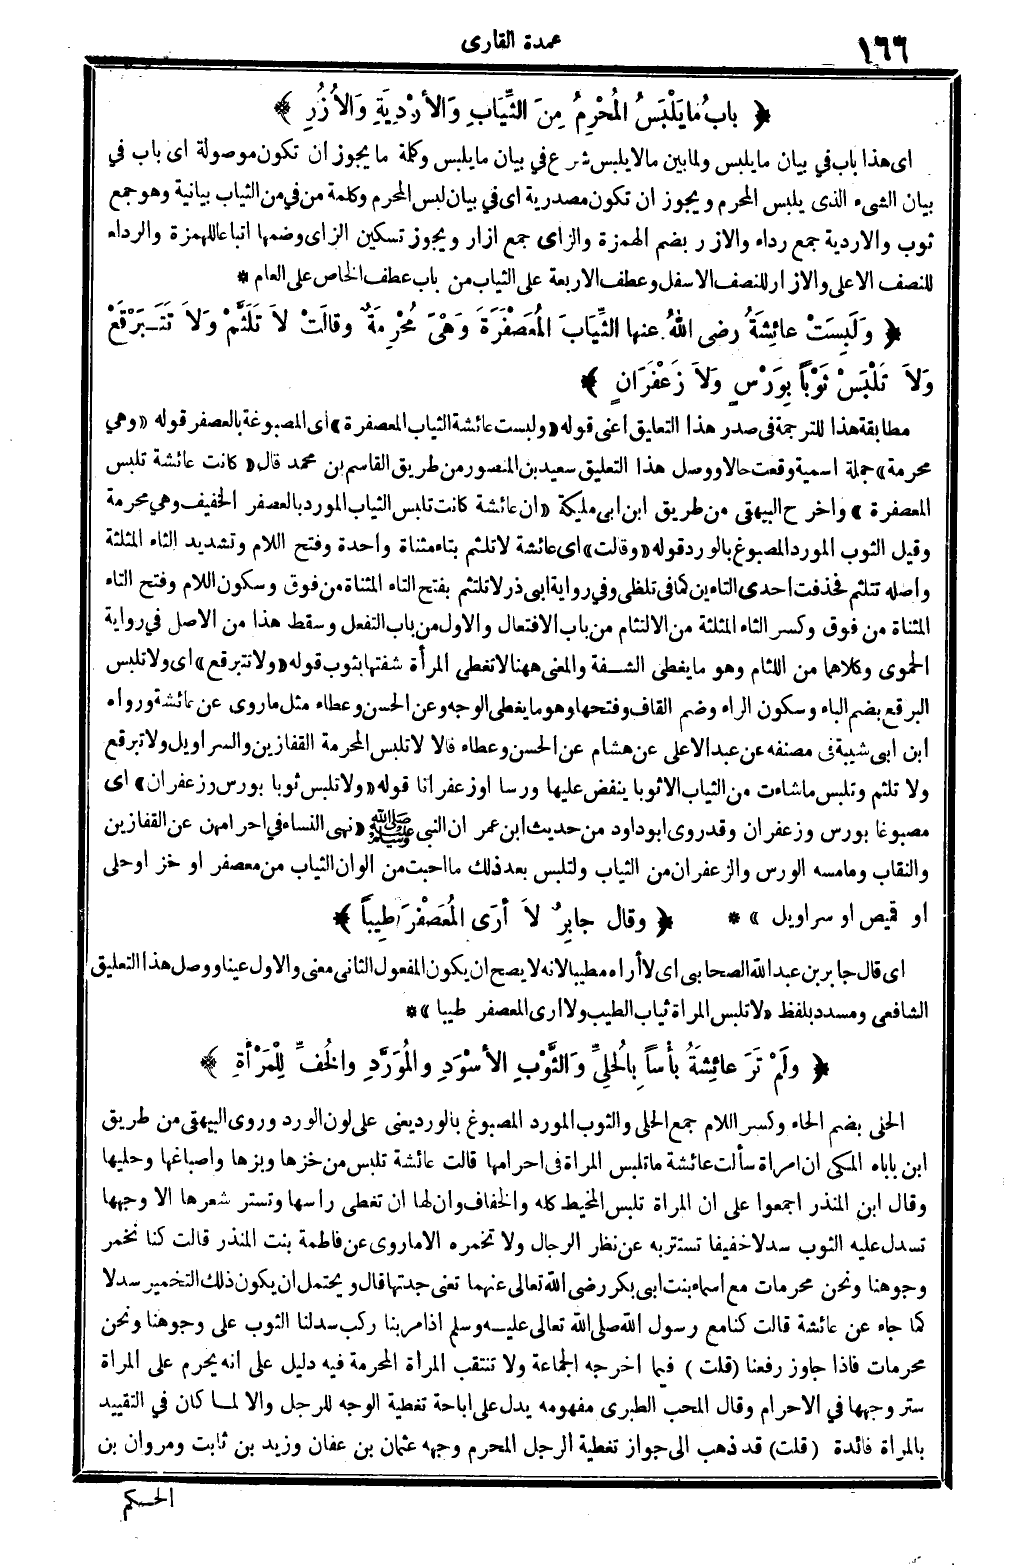 ١٦٦
عمدة القارى
﴿ بابُ مَا يَلْبَسُ الْمُحْرِمُ مِنَ الثِّيَابِ وَالأَرْدِيَةِ وَالأُزُرِ ﴾
اى هذا باب في بيان ما يلبس ولما بين مالا يلبس شرع في بيان ما يلبس وكلمة ما يجوز ان تكون موصولة اى باب في
بيان الشىء الذى يلبس المحرم ويجوز ان تكون مصدرية اى في بيان لبس المحرم وكلمة من في من الثياب بيانية وهو جمع
ثوب والاردية جمع رداء والازر بضم الهمزة والزاى جمع ازار ويجوز تسكين الزاى وضمها اتباعا للهمزة والرداء
للنصف الاعلى والازار للنصف الاسفل وعطف الاربعة على الثياب من باب عطف الخاص على العام *
﴿ وَلَبِسَتْ عائِشَةُ رضى اللهُ عنها الثِّيَابَ الْمُعَصْفَرَةَ وَهْىَ مُحْرِمَةٌ وقالَتْ لاَ تَلَثَّمْ وَلاَ تَتَبَرْقَعْ
وَلاَ تَلْبَسْ ثَوْباً بِوَرْسٍ وَلاَ زَعْفَرَانٍ ﴾
مطابقة هذا للترجمة فى صدر هذا التعليق اعنى قوله «ولبست عائشة الثياب المعصفرة» اى المصبوغة بالعصفر قوله «وهي
محرمة» جملة اسمية وقعت حالا ووصل هذا التعليق سعيد بن المنصور من طريق القاسم بن محمد قال «كانت عائشة تلبس
المعصفرة» واخرج البيهقى من طريق ابن ابى مليكة «ان عائشة كانت تلبس الثياب المورد بالعصفر الخفيف وهي محرمة
وقيل الثوب المورد المصبوغ بالورد قوله «وقالت» اى عائشة لا تلثم بتاء مثناة واحدة وفتح اللام وتشديد الثاء المثلثة
واصله تتلثم فحذفت احدى التاءين كما فى تلظى وفي رواية ابى ذر لا تلتثم بفتح التاء المثناة من فوق وسكون اللام وفتح التاء
المثناة من فوق وكسر الثاء المثلثة من الالتثام من باب الافتعال والاول من باب التفعل وسقط هذا من الاصل في رواية
الحموى وكلاهما من اللثام وهو ما يغطى الشفة والمعنى ههنا لا تغطى المرأة شفتها بثوب قوله «ولا تتبرقع» اى ولا تلبس
البرقع بضم الباء وسكون الراء وضم القاف وفتحها وهو ما يغطى الوجه وعن الحسن وعطاء مثل ما روى عن عائشة ورواه
ابن ابى شيبة فى مصنفه عن عبد الاعلى عن هشام عن الحسن وعطاء قالا لا تلبس المحرمة القفازين والسراويل ولا تبرقع
ولا تلثم وتلبس ما شاءت من الثياب الا ثوبا ينفض عليها ورسا او زعفرانا قوله «ولا تلبس ثوبا بورس وزعفران» اى
مصبوغا بورس وزعفران وقد روى ابو داود من حديث ابن عمر ان النبى ﷺ «نهى النساء في احرامهن عن القفازين
والنقاب وما مسه الورس والزعفران من الثياب ولتلبس بعد ذلك ما احبت من الوان الثياب من معصفر او خز او حلى
او قميص او سراويل» * ﴿ وقال جابِرٌ لاَ أرَى الْمُعَصْفَرَ طِيباً ﴾
اى قال جابر بن عبد الله الصحابى اى لا أراه مطيبا لانه لا يصح ان يكون المفعول الثانى معنى والاول عينا ووصل هذا التعليق
الشافعى ومسدد بلفظ «لا تلبس المراة ثياب الطيب ولا ارى المعصفر طيبا» *
﴿ ولَمْ تَرَ عائِشَةُ بأْساً بِالْحُلِىِّ وَالثَّوْبِ الأَسْوَدِ والْمُوَرَّدِ والْخُفِّ لِلْمَرْأةِ ﴾
الحلى بضم الحاء وكسر اللام جمع الحلى والثوب المورد المصبوغ بالورد يعنى على لون الورد وروى البيهقى من طريق
ابن باباه المكى ان امراة سألت عائشة ما تلبس المراة فى احرامها قالت عائشة تلبس من خزها وبزها واصباغها وحليها
وقال ابن المنذر اجمعوا على ان المراة تلبس المخيط كله والخفاف وان لها ان تغطى راسها وتستر شعرها الا وجهها
تسدل عليه الثوب سدلا خفيفا تستتر به عن نظر الرجال ولا تخمره الا ما روى عن فاطمة بنت المنذر قالت كنا نخمر
وجوهنا ونحن محرمات مع اسماء بنت ابى بكر رضى الله تعالى عنهما تعنى جدتها قال ويحتمل ان يكون ذلك التخمير سدلا
كما جاء عن عائشة قالت كنا مع رسول الله صلى الله تعالى عليه وسلم اذا مر بنا ركب سدلنا الثوب على وجوهنا ونحن
محرمات فاذا جاوز رفعنا (قلت) فيما اخرجه الجماعة ولا تنتقب المرأة المحرمة فيه دليل على انه يحرم على المراة
ستر وجهها في الاحرام وقال المحب الطبرى مفهومه يدل على اباحة تغطية الوجه للرجل والا لما كان في التقييد
بالمراة فائدة (قلت) قد ذهب الى جواز تغطية الرجل المحرم وجهه عثمان بن عفان وزيد بن ثابت ومروان بن
الحكم